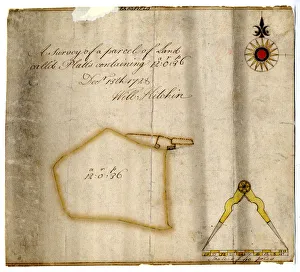 A Survey of a parcel of Land
called Platts containing 12·0·36
Decr 18th 1728
Will Hitchin
12·0·36